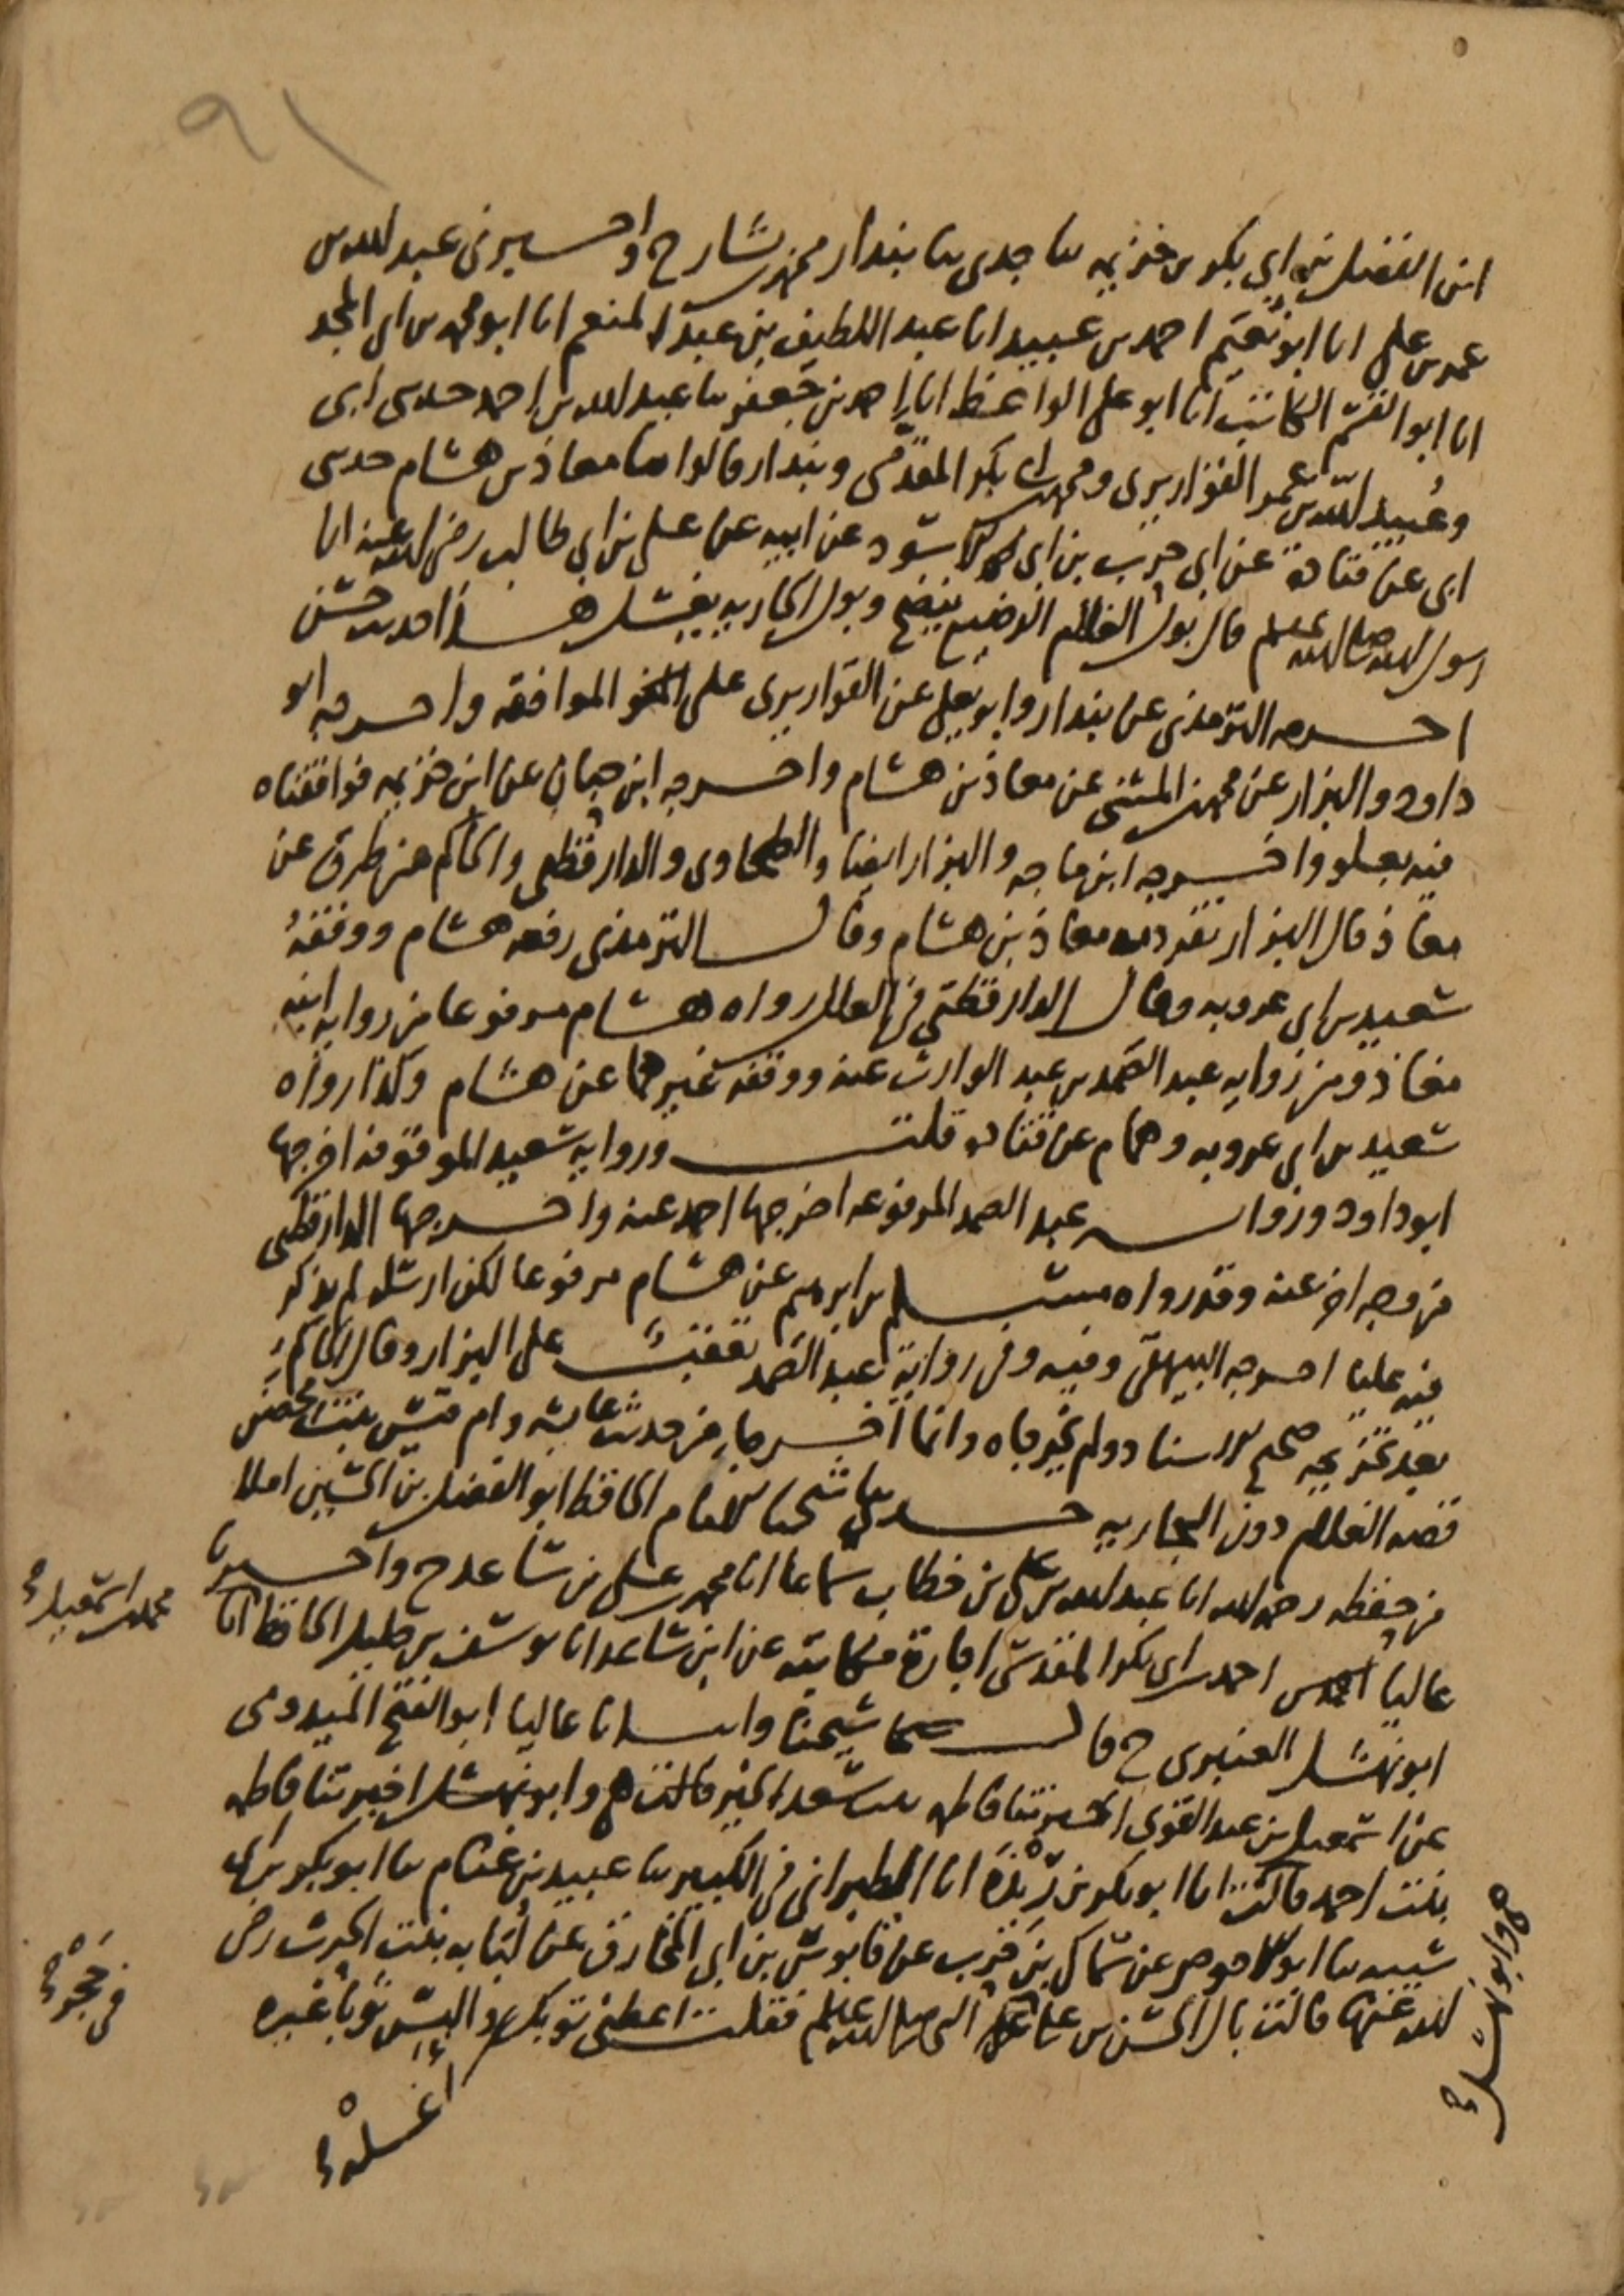 ٩١
ابن الفضل بن ابي بكر بن خزيمه ثنا جدى ثنا بندار محمد بن بشار ح واخبرنى عبد الله بن
عمر بن على انا ابو نعيم احمد بن عبيد انا عبد اللطيف بن عبد المنعم انا ابو محمد بن ابى المجد
انا ابو القسم الكاتب انا ابو على الواعظ انا احمد بن جعفر ثنا عبد الله بن احمد حدثنى ابى
وعُبيد الله بن عمر القواريرى ومحمد بن ابى بكر المقدّمى وبندار قالوا ثنا معاذ بن هشام حدثنى
ابى عن قتادة عن ابى حرب بن ابى الاسود عن ابيه عن على بن ابى طالب رضى الله عنه ان
رسول الله صلى الله عليه وسلم قال بول الغلام الرضيع ينضح وبول الجاريه يغسل هذا حديث حسن
اخرجه الترمذى عن بندار وابو يعلى عن القواريرى على الموافقه واخرجه ابو
داود والبزار عن محمد بن المثنى عن معاذ بن هشام واخرجه ابن حبان عن ابن خزيمه فوافقناه
فيه بعلو واخرجه ابن ماجه والبزار ايضا والطحاوى والدارقطنى والحاكم من طرق عن
معاذ قال البزار تفرد به معاذ بن هشام وقال الترمذى رفعه هشام ووقفهُ
سعيد بن ابى عروبه وقال الدارقطنى فى العلل رواه هشام مرفوعا من روايه ابنه
معاذ ومن روايه عبد الصمد بن عبد الوارث عنه ووقفه غيرهما عن هشام وكذا رواه
سعيد بن ابى عروبه وهمام عن قتاده قلت وروايه سعيد الموقوفه اخرجها
ابو داود وروايه عبد الصمد المرفوعه اخرجها احمد عنه واخرجها الدارقطنى
من وجه اخر عنه وقد رواه مسلم بن ابرهيم عن هشام مرفوعا لكن ارسله لم يذكر
فيه عليا اخرجه البيهقى وفيه وفى رواية عبد الصمد تعقبٌ على البزار وقال الحاكم
بعد تخريجه صحيح الاسناد ولم يخرجاه وانما اخرجا من حديث عايشه وام قيس بنت محصن
قصه الغلام دون الجاريه حدثنا شيخنا الامام الحافظ ابو الفضل بن الحسين املا
من حفظه رحمه الله انا عبد الله بن على بن خطاب سماعا انا محمد بن على بن ساعد ح واخبرنا
محمد بن اسمعيل
عاليا احمد بن ابى بكر المقدسى اجازة مكاتبة عن ابن ساعد انا يوسف بن خليل الحافظ انا
ابو نهشل العنبرى ح قال شيخنا وانبانا عاليا ابو الفتح الميدومى
عن اسمعيل بن عبد القوى اخبرتنا فاطمه بنت سعد الخير قالت هى وابو نهشل اخبرتنا فاطمه
بنت احمد قالت انا ابو بكر بن رِيْذَة انا الطبرانى فى الكبير ثنا عبيد بن غنام ثنا ابو بكر بن ابى
شيبه ثنا ابو الاحوص عن سماك بن حرب عن قابوس بن ابى المخارق عن لُبابه بنت الحرث رضى
الله عنها قالت بال الحسن بن على على النبى صلى الله عليه وسلم فقلت اعطنى ثوبك والبس ثوبا غيره
فى حَجْر
هى وابو نهشل
اغسله